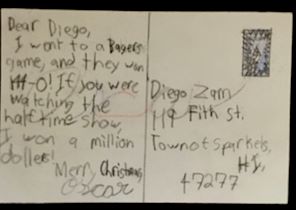 Dear Diego,
I went to a Bagers
game, and they won
14-0! If you were
watching the
halftime show,
I won a million
dollers!
Merry Christmas,
Oscar
Diego Zarn
119 Fith st.
Town of sparkels,
HI,
47277